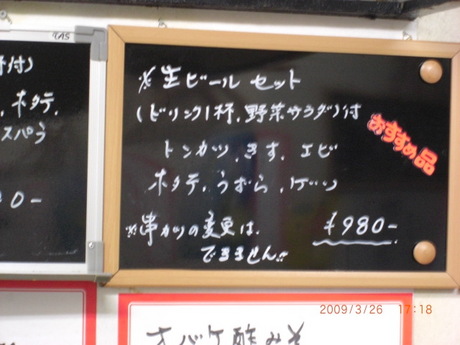 TAS
付)
ホタテ,
スパラ
0-
※生ビール セット
(ドリンク1杯,野菜サラダ)付
おすすめ品
トンカツ,きす,エビ
ホタテ,うずら,
※串カツの変更は,
できません!!
¥980-
2009/3/26 17:18
オバケ酢みそ